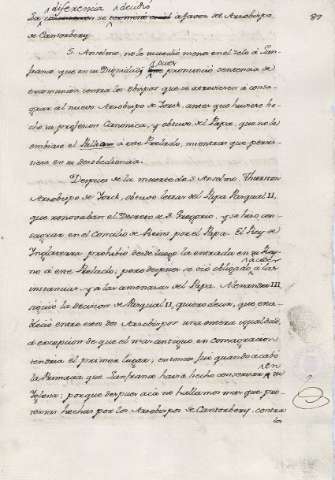 diferencia decidió
La controversia se terminó a favor del Arzobispo
de Cantorbery.
87
S. Anselmo, no le sucedió menos en el zelo a Lan-
franco que en su Dignidad, pues pronunció sentencia de
excomunion contra los obispos que se atreviesen a conse-
grar al nuevo Arzobispo de Yorck, antes que huviese he-
cho su profesion Canonica, y obtuvo del Papa, que no le
embiase el Palio a este Prelado, mientras que persis-
tiese en su desobediencia.
Despues de la muerte de S. Anselmo, Thurstan
Arzobispo de Yorck, obtuvo letras del Papa Pasqual II,
que renovaban el Decreto de S. Gregorio, y se hizo con-
sagrar en el Concilio de Reims por el Papa. El Rey de
Inglaterra prohibió desde luego la entrada en su Rey-
no a este Prelado, pero despues se vió obligado a ceder a las
instancias, y a las amenazas del Papa. Alexandro III,
siguió la decision de Pasqual II, quiero decir, que esta-
bleció entre esos dos Arzobispos una entera igualdad,
a excepcion de que el mas antiguo en consagracion
tendria el primer lugar; entonces fué quando acabó
la Primacia que Lanfranco havia hecho conservar en su
Iglesia; porque despues acá no hallamos mas que pro-
textas hechas por los Arzobispos de Cantorbery, contra
los